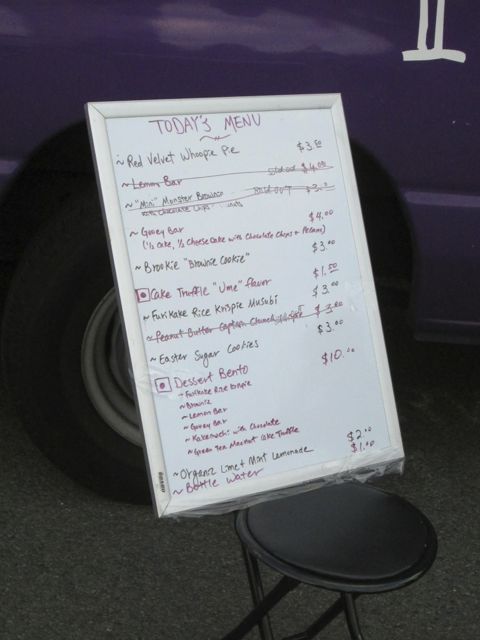 TODAY'S MENU
~ Red Velvet Whoopie Pie $3.50
~ Lemon Bar Sold out $4.00
~ "Mini" Monster Brownie Sold out
with Chocolate Chips
~ Gooey Bar $4.00
(½ Cake, ½ Cheese Cake with Chocolate Chips + Pecans)
~ Brookie "Brownie Cookie" $3.00
Cake Truffle "Ume" flavor $1.50
~ Furikake Rice Krispie Musubi $3.00
~ Peanut Butter Captain Crunch $3.00
~ Easter Sugar Cookies $3.00
Dessert Bento $10.00
~ Furikake Rice Krispie
~ Brownie
~ Lemon Bar
~ Gooey Bar
~ Kakimochi with Chocolate
~ Green Tea Cake Truffle
~ Organic Lime + Mint Lemonade $2.00
~ Bottle Water $1.00